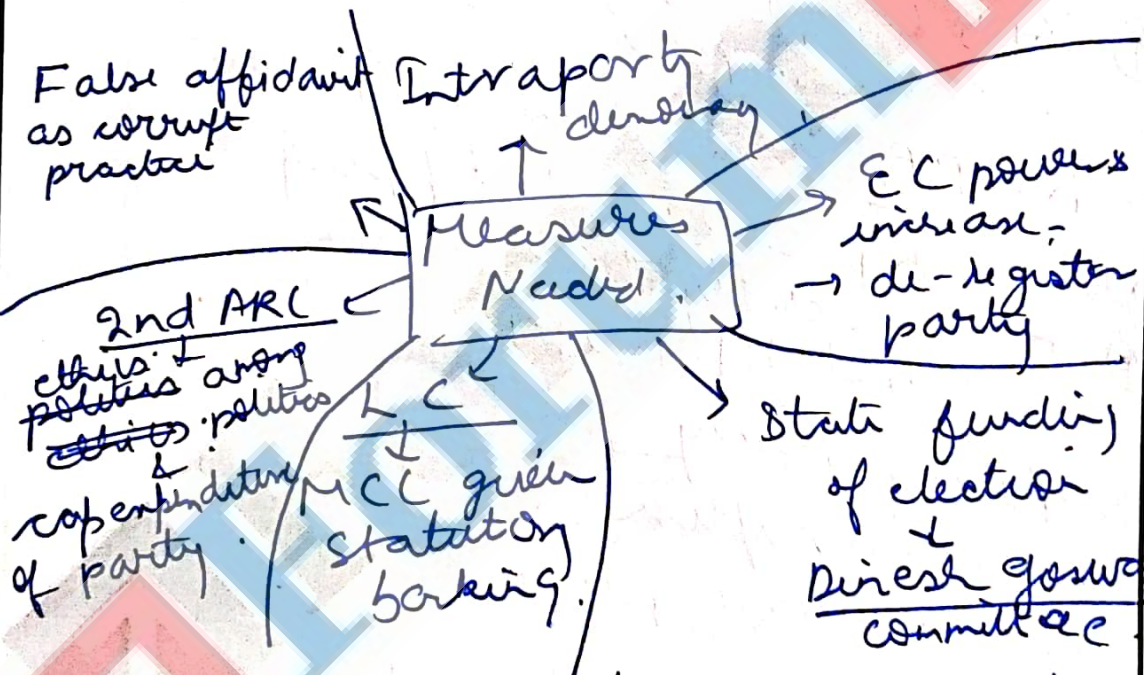 False affidavit
as corrupt
practice
Intraparty
democracy
Measures
Needed.
EC powers
increase -
→ de-register
party
2nd ARC
ethics
among
politics
&
cap expenditure
of party.
LC
MCC given
statutory
backing.
State funding
of election
Dinesh Goswa
committee
Forum